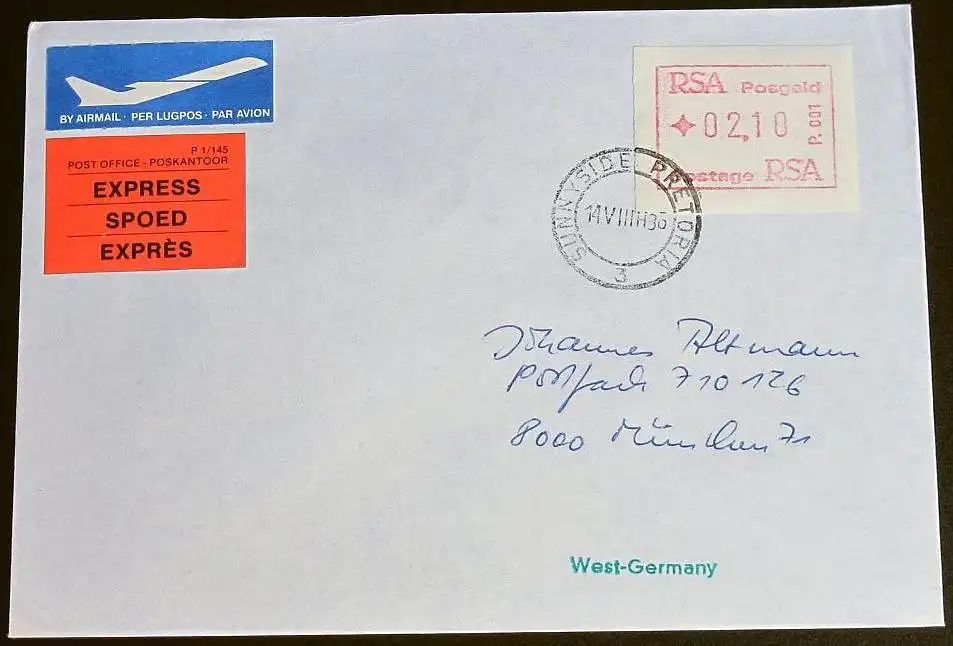 BY AIRMAIL · PER LUGPOS · PAR AVION
P 1/145
POST OFFICE - POSKANTOOR
EXPRESS
SPOED
EXPRÈS
RSA Posgeld
02,10
P.001
Postage RSA
SUNNYSIDE PRETORIA
14VIII86
3
Johannes Altmann
Postfach 710 126
8000 München 71
West-Germany